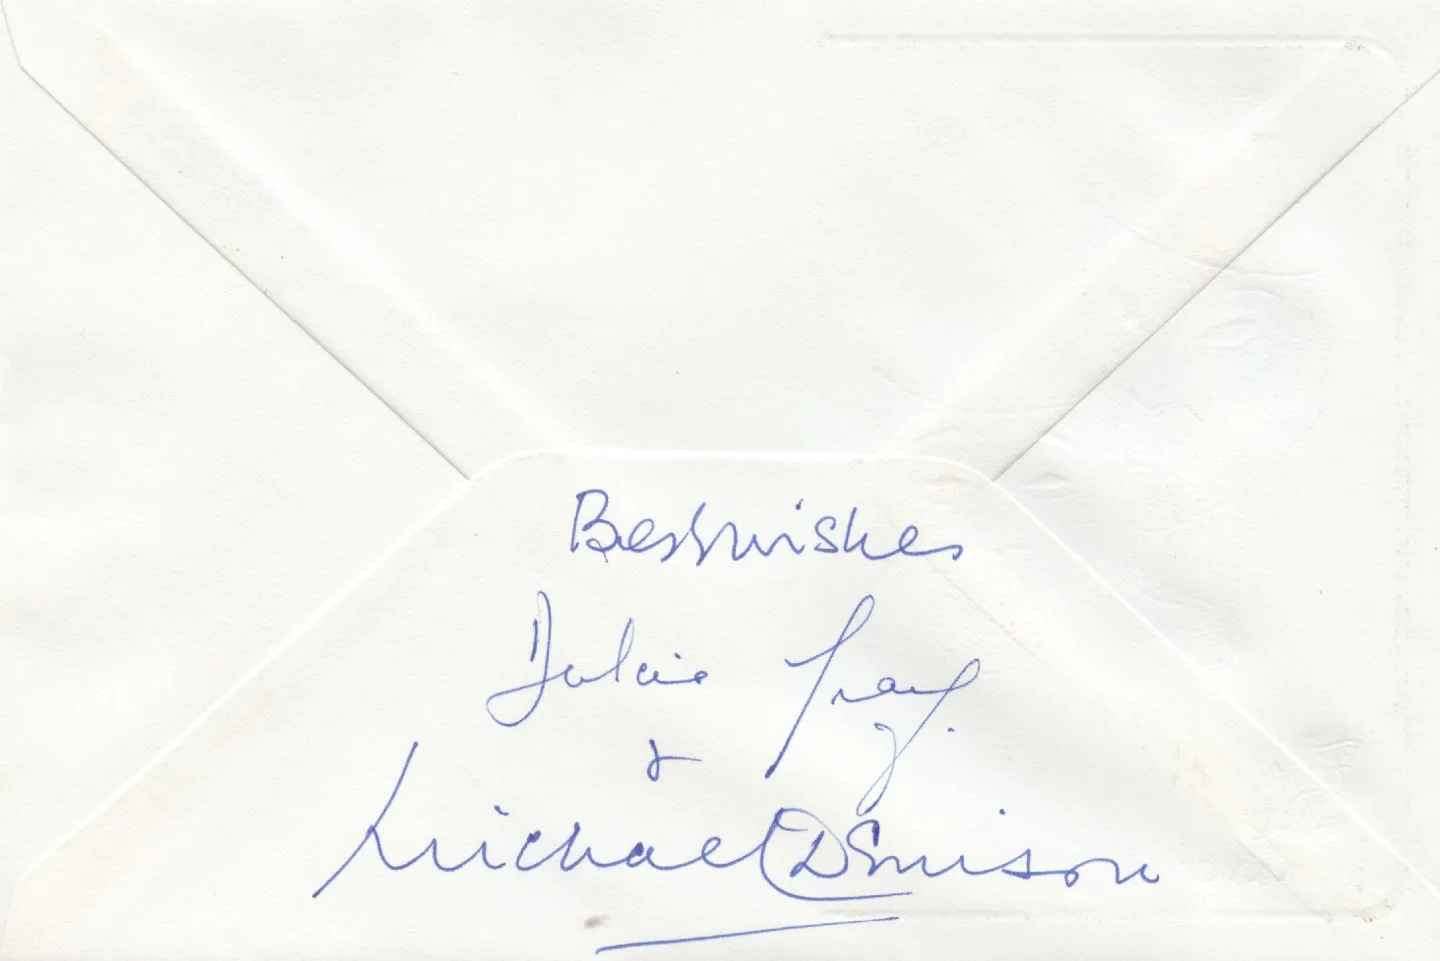 Best wishes
Dulcie Gray.
&
Michael Denison